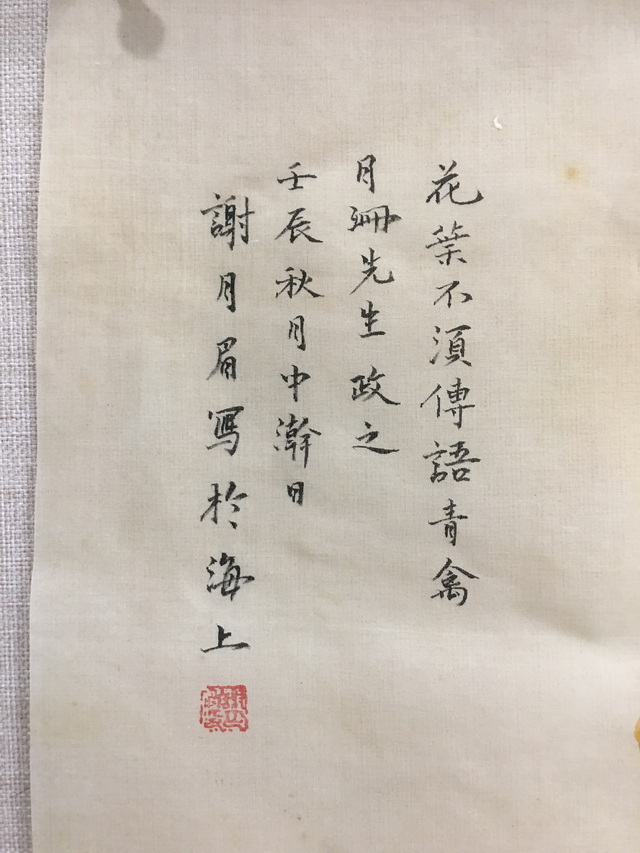 花葉不須傳語青禽
月珊先生政之
壬辰秋月中澣日
謝月眉寫於海上